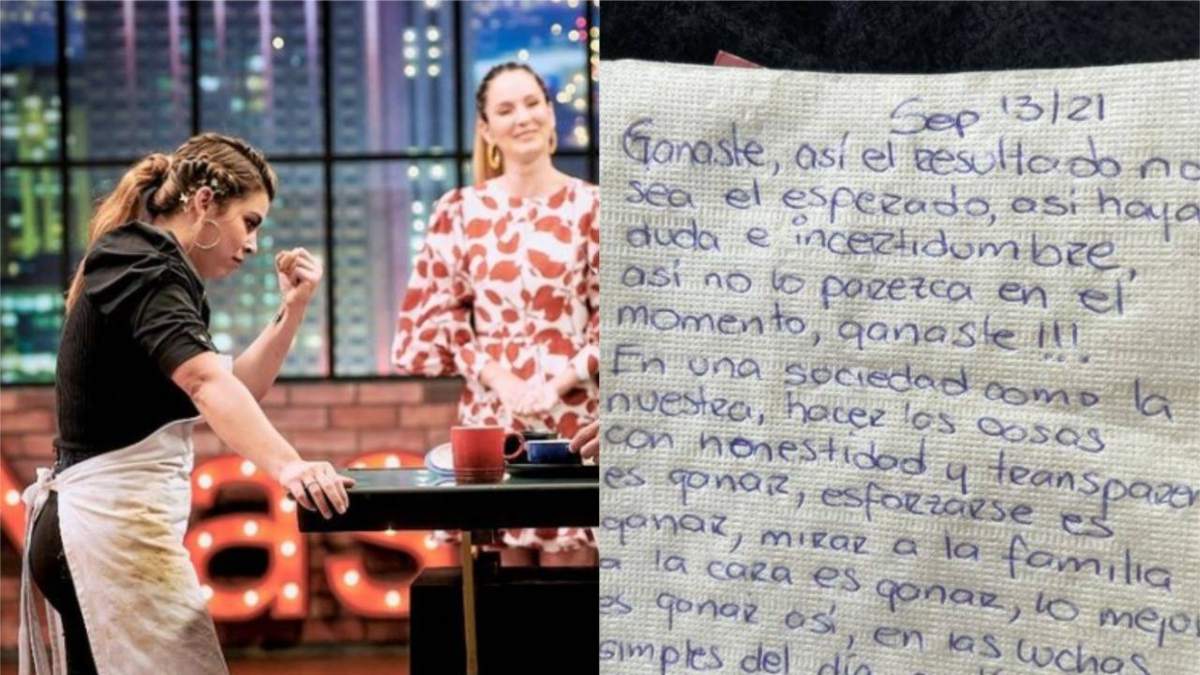 as
Sep 13/21
Ganaste, así el resultado no
sea el esperado, asi haya
duda e incertidumbre,
así no lo parezca en el
momento, ganaste !!!
En una sociedad como la
nuestra, hacer las cosas
con honestidad y transparen
es ganar, esforzarse es
ganar, mirar a la familia
a la cara es ganar, lo mejor
es ganar así, en las luchas
simples del día